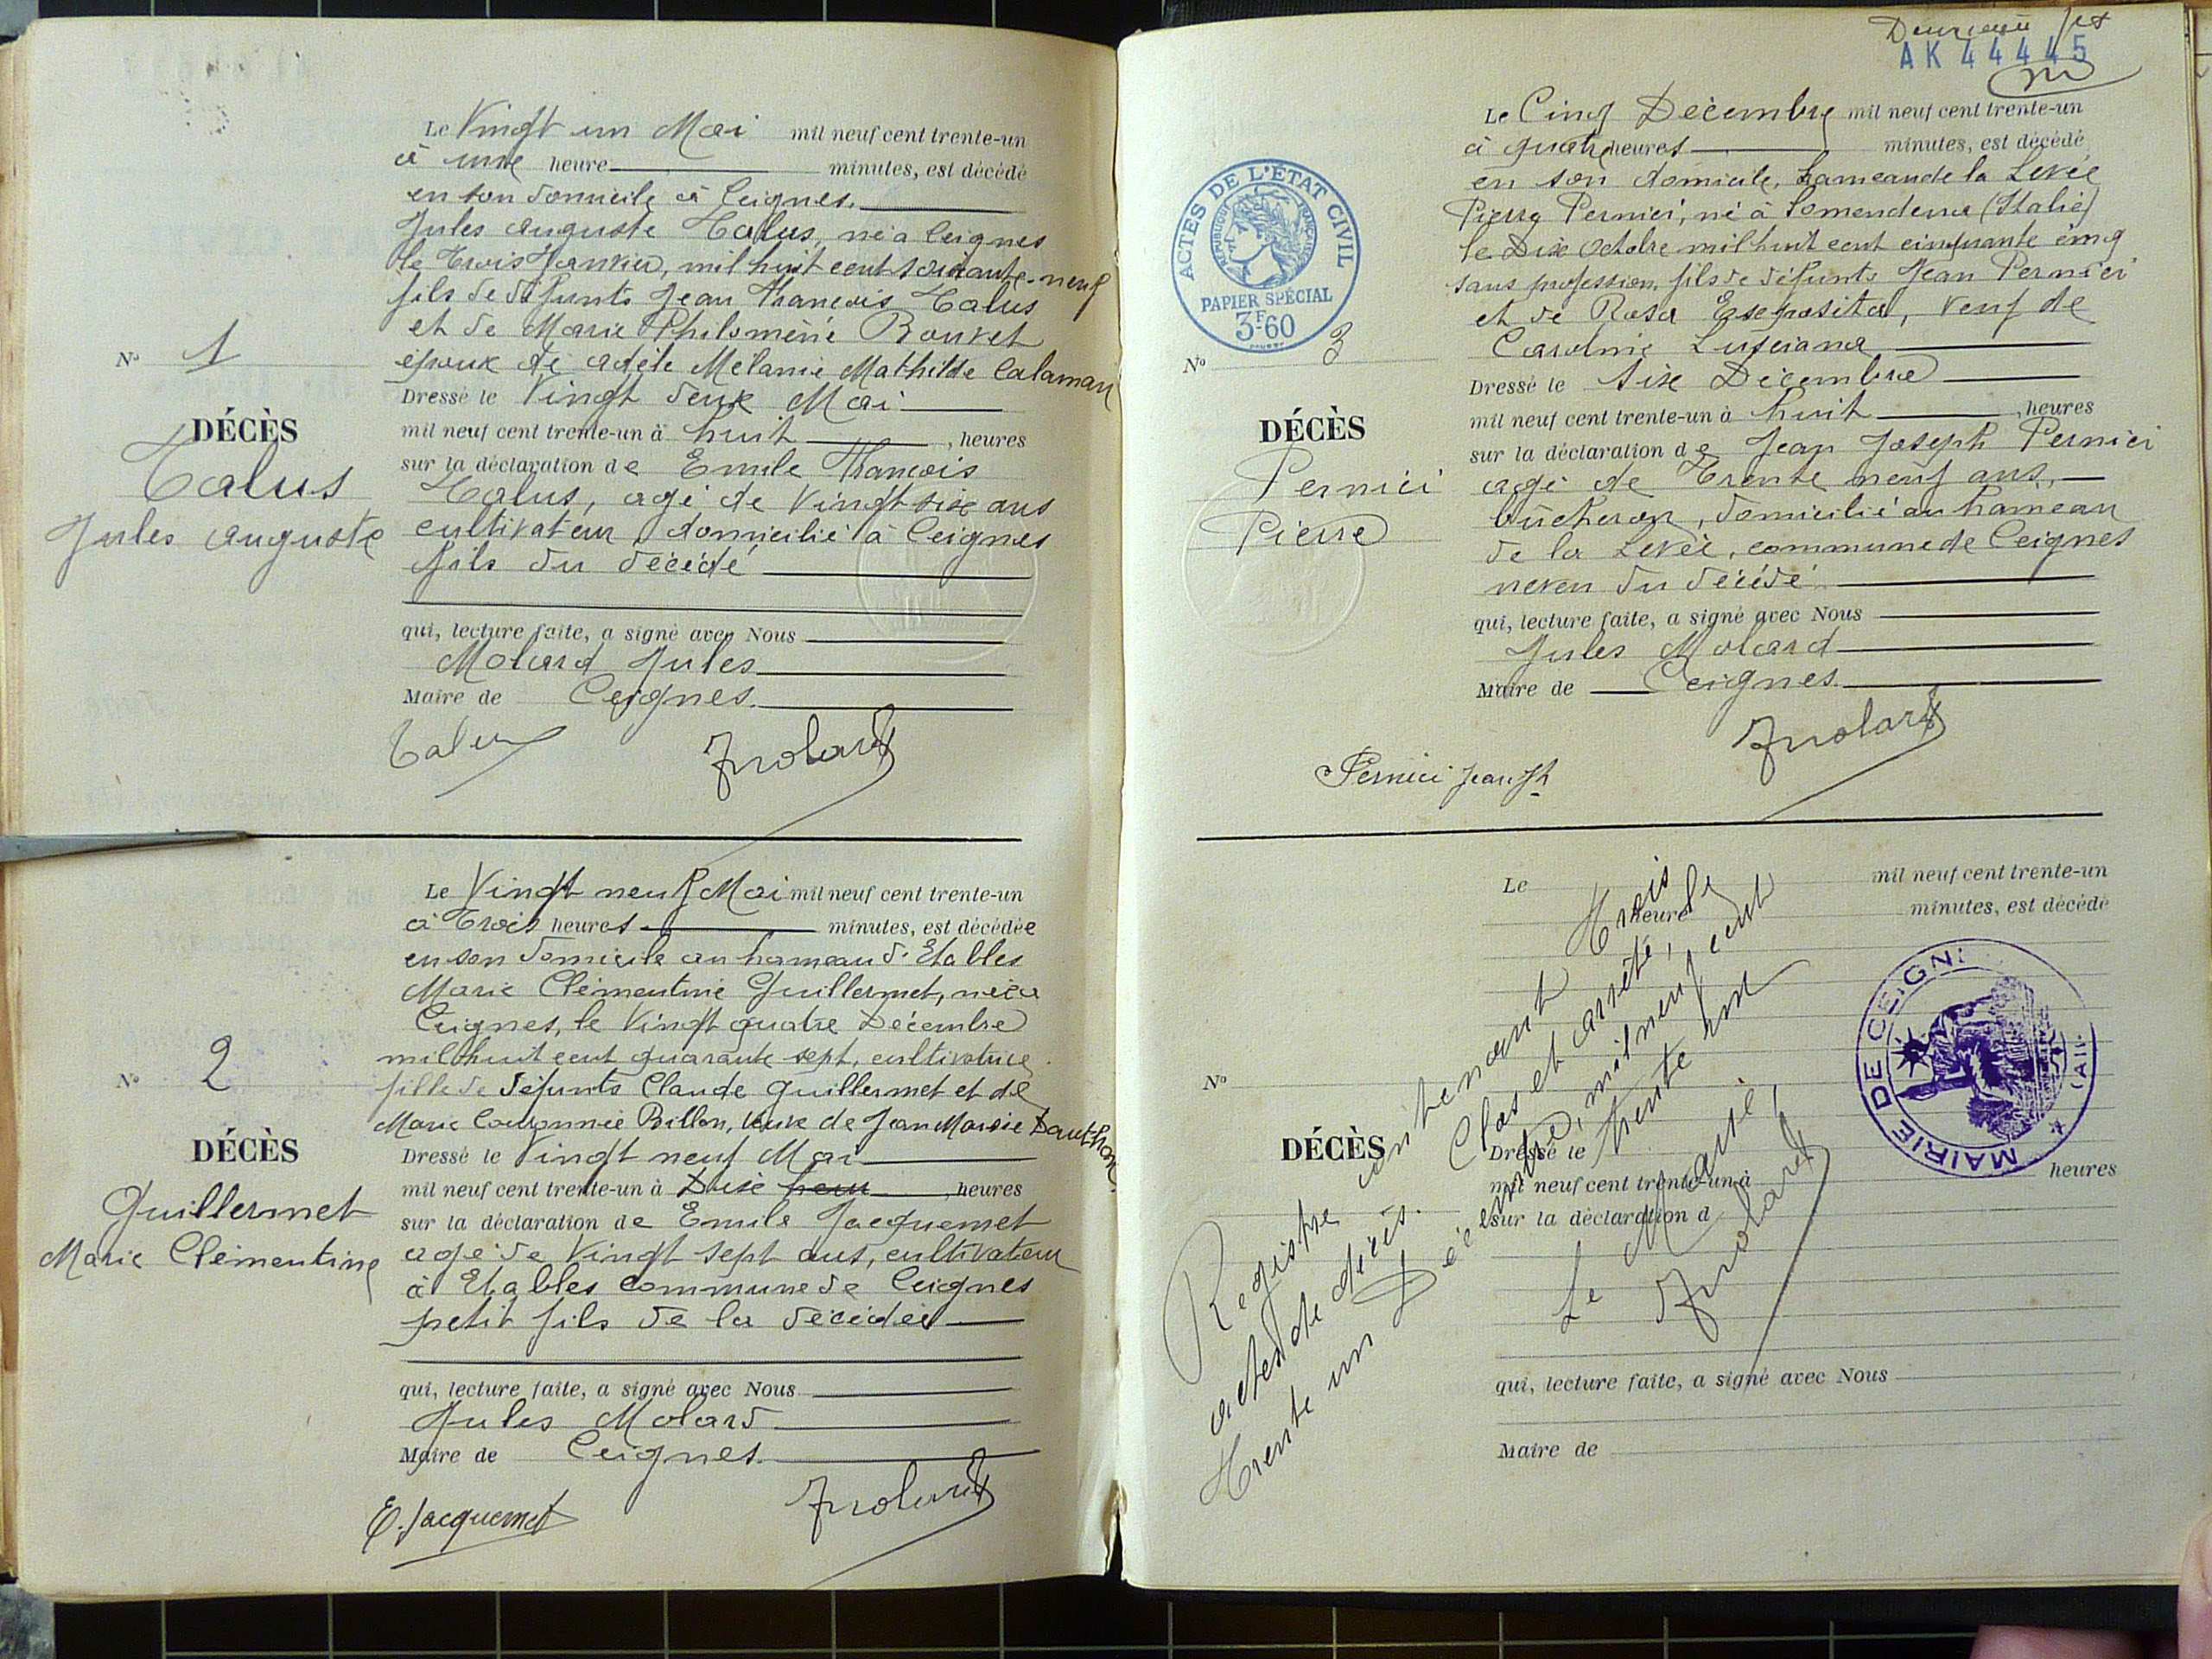 Le Vingt un Mai mil neuf cent trente-un
à une heure minutes, est décédé
en son domicile à Ceignes.
Jules Auguste Talus, né à Ceignes
le Trois Janvier, mil huit cent soixante-neuf
fils de défunts Jean François Talus
et de Marie Philomène Bouvet
époux de Adèle Mélanie Mathilde Calaman
Dressé le Vingt deux Mai
mil neuf cent trente-un à huit, heures
sur la déclaration de Emile François
Talus, agé de Vingt six ans
cultivateur domicilié à Ceignes
fils du décédé
qui, lecture faite, a signé avec Nous
Molard Jules
Maire de Ceignes.
Talus JMolard
N° 1
DÉCÈS
Talus
Jules Auguste
Le Vingt neuf Mai mil neuf cent trente-un
à Trois heures minutes, est décédée
en son domicile au hameau d'Etables
Marie Clémentine Guillermet, née à
Ceignes, le Vingt quatre Décembre
mil huit cent quarante sept, cultivatrice
fille de défunts Claude Guillermet et de
Marie Billon, veuve de Jean Marie Dauthon.
Dressé le Vingt neuf Mai
mil neuf cent trente-un à Dixe heu, heures
sur la déclaration de Emile Jacquemet
agé de Vingt sept ans, cultivateur
à Etables commune de Ceignes
petit fils de la décédée
qui, lecture faite, a signé avec Nous
Jules Molard
Maire de Ceignes.
E. Jacquemet JMolard
N° 2
DÉCÈS
Guillermet
Marie Clémentine
AK 44445
ACTES DE L'ÉTAT CIVIL
RÉPUBLIQUE FRANÇAISE
PAPIER SPÉCIAL
3F60
Le Cinq Décembre mil neuf cent trente-un
à quatre heures minutes, est décédé
en son domicile, hameau de la Levée
Pierre Pernici, né à Somendena (Italie)
le Dix Octobre mil huit cent cinquante cinq
sans profession, fils de défunts Jean Pernici
et de Rosa Eseposita, veuf de
Caroline Lusciana
Dressé le Six Décembre
mil neuf cent trente-un à huit, heures
sur la déclaration de Jean Joseph Pernici
agé de Trente neuf ans,
bûcheron, domicilié au hameau
de la Levée, commune de Ceignes
neveu du décédé
qui, lecture faite, a signé avec Nous
Jules Molard
Maire de Ceignes.
JMolard
Pernici Jean Jh
N° 3
DÉCÈS
Pernici
Pierre
Le heure mil neuf cent trente-un
minutes, est décédé
N°
DÉCÈS
Dressé le
mil neuf cent trente-un à heures
sur la déclaration d
qui, lecture faite, a signé avec Nous
Maire de
Registre contenant Trois
actes de décès. Clos et arrêté, le
Trente un Décembre, mil neuf cent
trente un
Le Maire,
JMolard
MAIRIE DE CEIGN
(AIN)